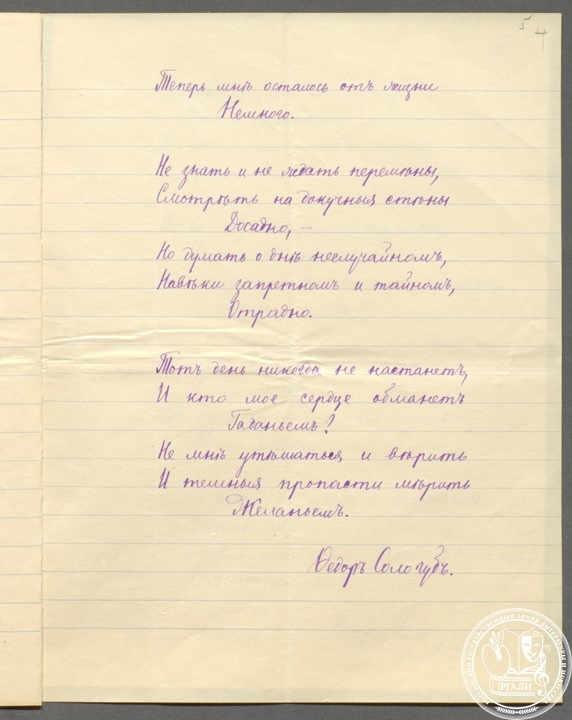 5 4
Теперь мнѣ осталось отъ жизни
Немного.
Не знать и не ждать перемѣны,
Смотрѣть на докучныя стѣны
Досадно, –
Но думать о днѣ неслучайномъ,
Навѣки запретномъ и тайномъ,
Отрадно.
Тотъ день никогда не настанетъ,
И кто мое сердце обманетъ
Гаданьемъ?
Не мнѣ утѣшаться и вѣрить
И темныя пропасти мѣрить
Желаньемъ.
Ѳедоръ Сологубъ.
РОССИЙСКИЙ ГОСУДАРСТВЕННЫЙ АРХИВ ЛИТЕРАТУРЫ И ИСКУССТВА
РГАЛИ